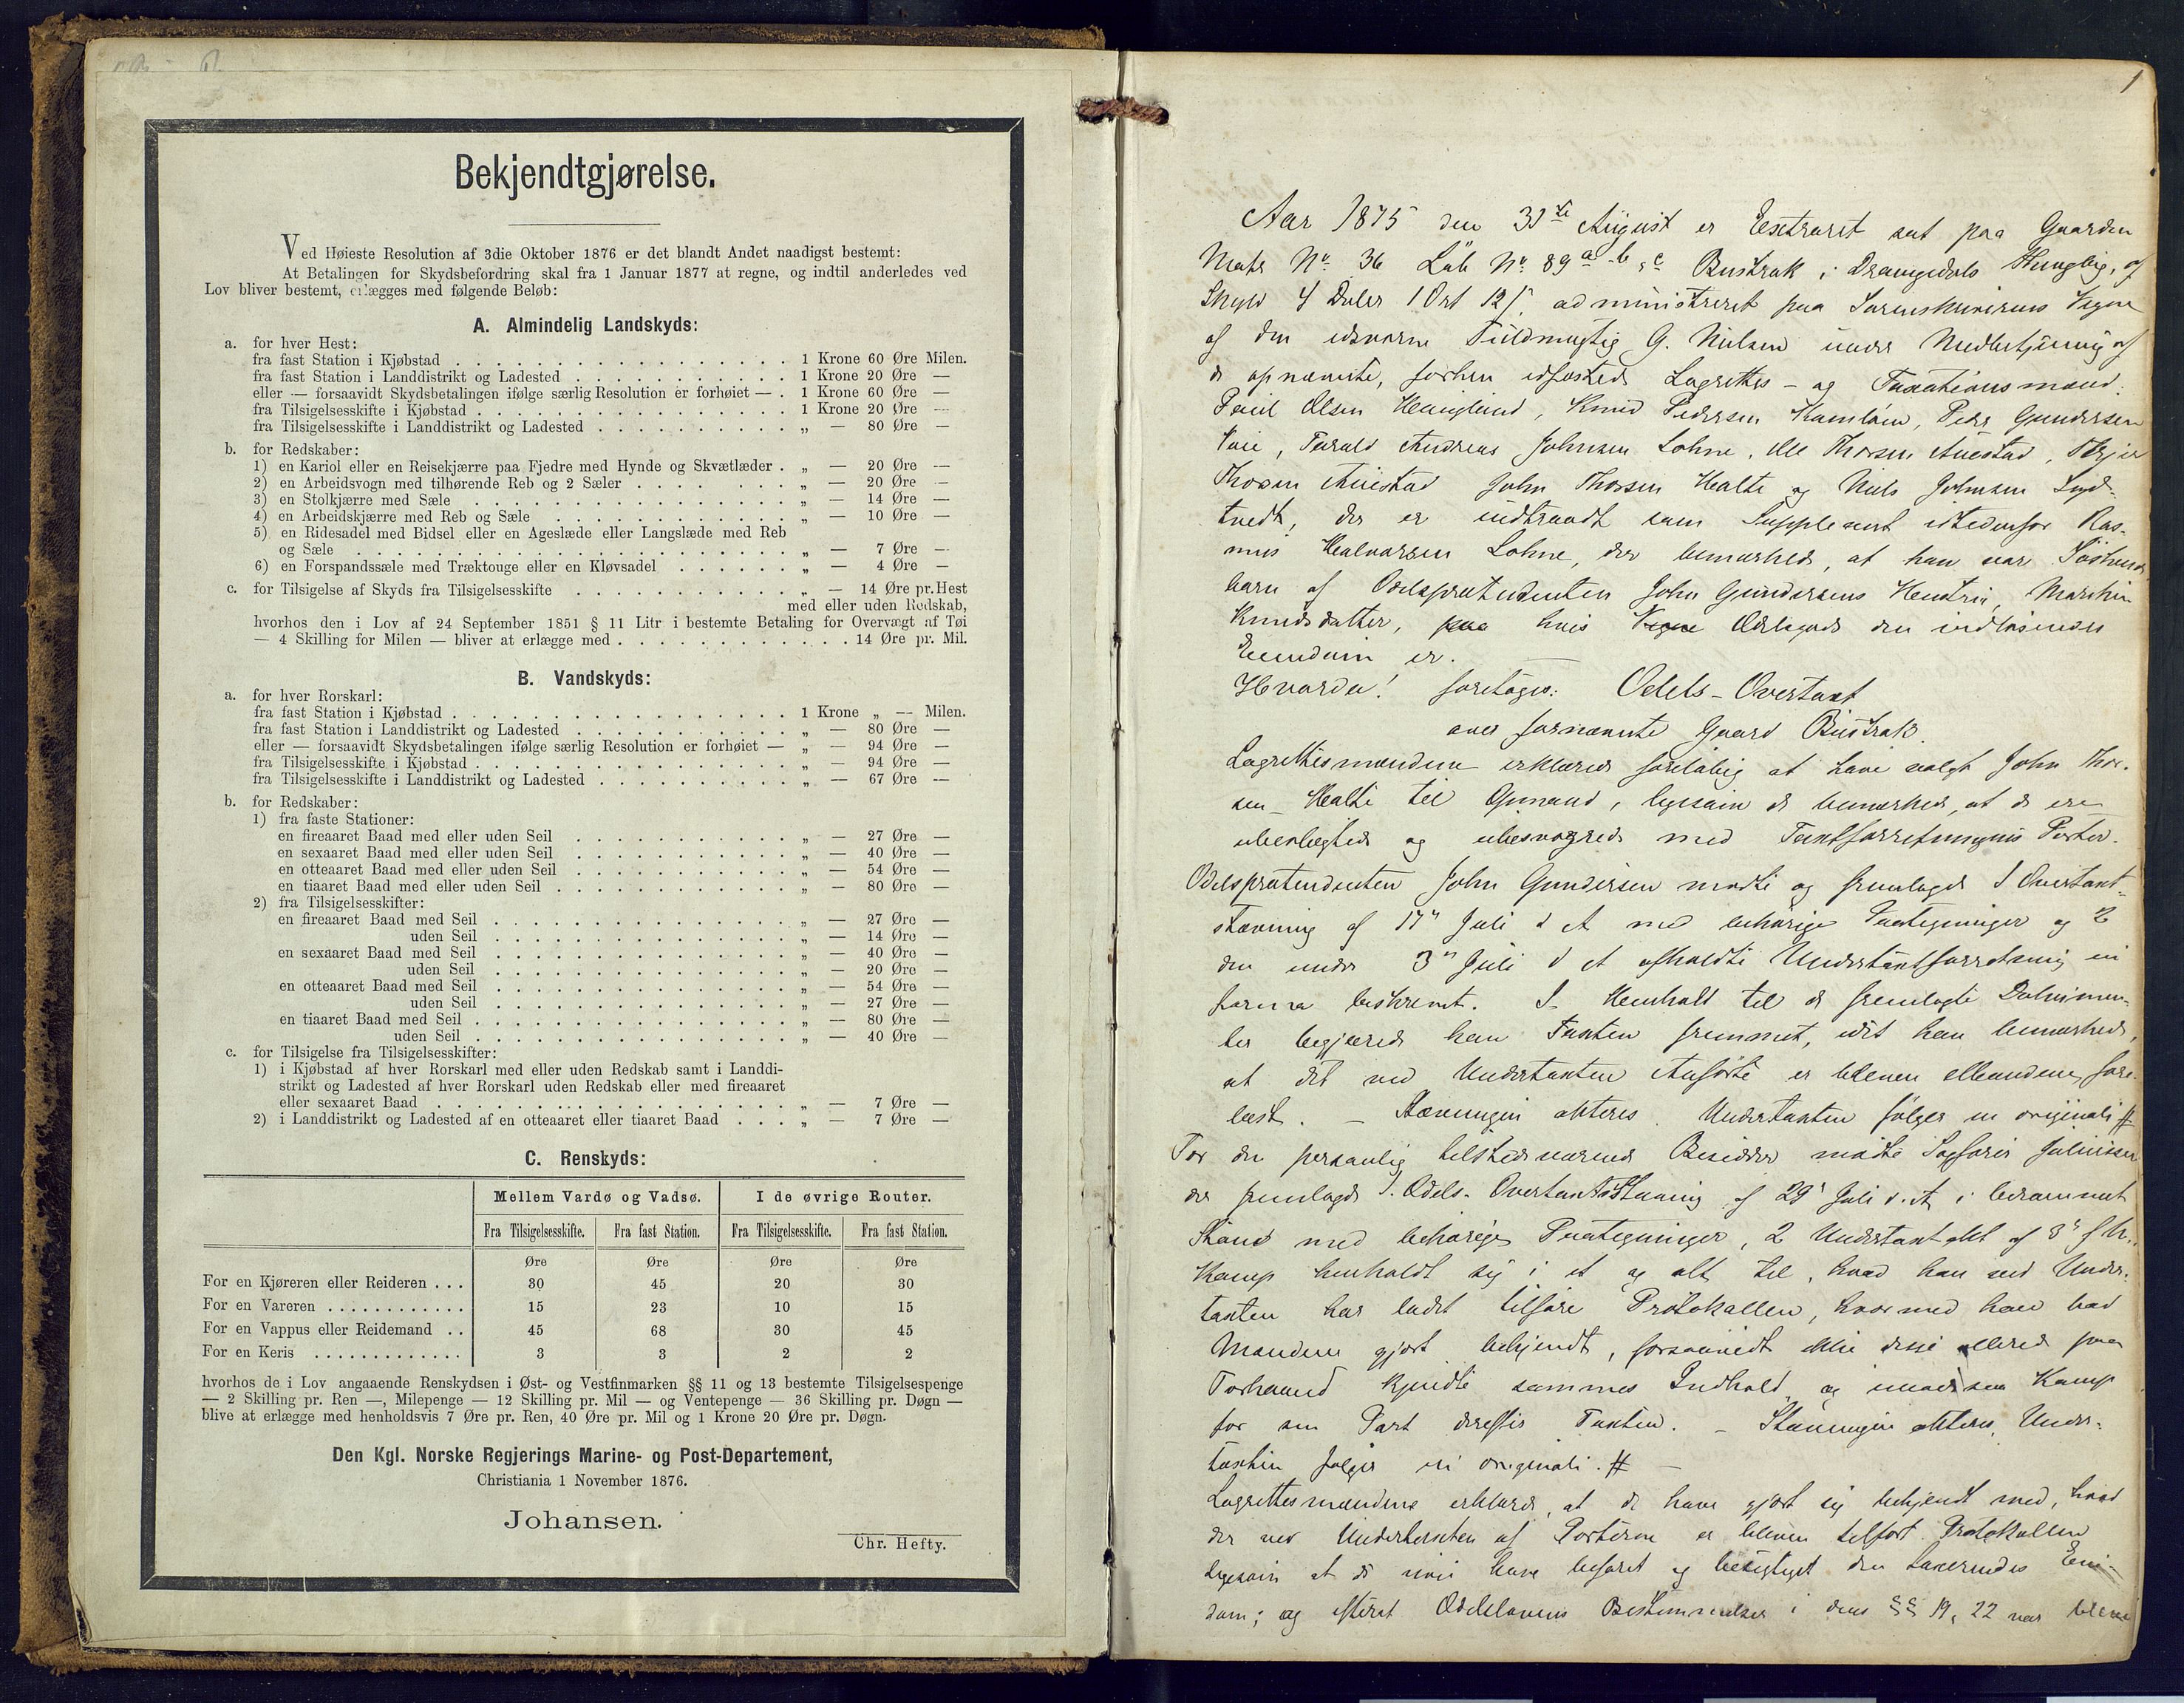 Bekjendtgjørelse.
Ved Høieste Resolution af 3die Oktober 1876 er det blandt Andet naadigst bestemt:
At Betalingen for Skydsbefordring skal fra 1 Januar 1877 at regne, og indtil anderledes ved
Lov bliver bestemt, erlægges med følgende Beløb:
A. Almindelig Landskyds:
a. for hver Hest:
fra fast Station i Kjøbstad . . . 1 Krone 60 Øre Milen.
fra fast Station i Landdistrikt og Ladested . . . 1 Krone 20 Øre —
eller — forsaavidt Skydsbetalingen ifølge særlig Resolution er forhøiet — . 1 Krone 60 Øre —
fra Tilsigelsesskifte i Kjøbstad . . . 1 Krone 20 Øre —
fra Tilsigelsesskifte i Landdistrikt og Ladested . . . „ — 80 Øre —
b. for Redskaber:
1) en Kariol eller en Reisekjærre paa Fjedre med Hynde og Skvætlæder . „ — 20 Øre —
2) en Arbeidsvogn med tilhørende Reb og 2 Sæler . . . „ — 20 Øre —
3) en Stolkjærre med Sæle . . . „ — 14 Øre —
4) en Arbeidskjærre med Reb og Sæle . . . „ — 10 Øre —
5) en Ridesadel med Bidsel eller en Ageslæde eller Langslæde med Reb
og Sæle . . . „ — 7 Øre —
6) en Forspandssæle med Træktouge eller en Kløvsadel . . . „ — 4 Øre —
c. for Tilsigelse af Skyds fra Tilsigelsesskifte . . . „ — 14 Øre pr. Hest
med eller uden Redskab,
hvorhos den i Lov af 24 September 1851 § 11 Litr i bestemte Betaling for Overvægt af Tøi
— 4 Skilling for Milen — bliver at erlægge med . . . 14 Øre pr. Mil.
B. Vandskyds:
a. for hver Rorskarl:
fra fast Station i Kjøbstad . . . 1 Krone „ — Milen.
fra fast Station i Landdistrikt og Ladested . . . „ — 80 Øre —
eller — forsaavidt Skydsbetalingen ifølge særlig Resolution er forhøiet — „ — 94 Øre —
fra Tilsigelsesskifte i Kjøbstad . . . „ — 94 Øre —
fra Tilsigelsesskifte i Landdistrikt og Ladested . . . „ — 67 Øre —
b. for Redskaber:
1) fra faste Stationer:
en fireaaret Baad med eller uden Seil . . . „ — 27 Øre —
en sexaaret Baad med eller uden Seil . . . „ — 40 Øre —
en otteaaret Baad med eller uden Seil . . . „ — 54 Øre —
en tiaaret Baad med eller uden Seil . . . „ — 80 Øre —
2) fra Tilsigelsesskifter:
en fireaaret Baad med Seil . . . „ — 27 Øre —
uden Seil . . . „ — 14 Øre —
en sexaaret Baad med Seil . . . „ — 40 Øre —
uden Seil . . . „ — 20 Øre —
en otteaaret Baad med Seil . . . „ — 54 Øre —
uden Seil . . . „ — 27 Øre —
en tiaaret Baad med Seil . . . „ — 80 Øre —
uden Seil . . . „ — 40 Øre —
c. for Tilsigelse fra Tilsigelsesskifter:
1) i Kjøbstad af hver Rorskarl med eller uden Redskab samt i Landdi-
strikt og Ladested af hver Rorskarl uden Redskab eller med fireaaret
eller sexaaret Baad . . . „ — 7 Øre —
2) i Landdistrikt og Ladested af en otteaaret eller tiaaret Baad . . . „ — 7 Øre —
C. Renskyds:
Mellem Vardø og Vadsø. I de øvrige Router.
Fra Tilsigelsesskifte. Fra fast Station. Fra Tilsigelsesskifte. Fra fast Station.
Øre Øre Øre Øre
For en Kjøreren eller Reideren . . . 30 45 20 30
For en Vareren . . . 15 23 10 15
For en Vappus eller Reidemand . . 45 68 30 45
For en Keris . . . 3 3 2 2
hvorhos de i Lov angaaende Renskydsen i Øst- og Vestfinmarken §§ 11 og 13 bestemte Tilsigelsespenge
— 2 Skilling pr. Ren —, Milepenge — 12 Skilling pr. Mil — og Ventepenge — 36 Skilling pr. Døgn —
blive at erlægge med henholdsvis 7 Øre pr. Ren, 40 Øre pr. Mil og 1 Krone 20 Øre pr. Døgn.
Den Kgl. Norske Regjerings Marine- og Post-Departement,
Christiania 1 November 1876.
Johansen.
Chr. Hefty.
1
Aar 1875 den 31te August er Extraret sat paa Gaarden
Matr No 36 Løb No 89 a b & c Bustrak i Drangedals Thinglag, af
Skyld 4 Daler 1 Ort 12 ß, administreret paa Sorenskriverens Vegne
af den edsvorne Fuldmægtig G. Nielsen under Medbetjening af
de opnævnte, forhen edfæstede Lagrettes- og Taxationsmænd
Poul Olsen Haugland, Knud Pedersen Peder Gundersen
Voie, Tarald Andreas Johnsen Lohne, Ole Thorsen Auestad,
Thorsen Auestad John Thorsen Halte og Niels Johnsen
tvedt, der er indtraadt som Supplement istedenfor Ras-
mus Halvorsen Lohne, der bemærkede, at han var Søskende
barn af Odelsprætendenten John Gundersens Hustru,
Knudsdatter, paa hvis Vegne Odelsgods den indløsendes
Eiendom er.
Hvorda! foretoges: Odels-Overtaxt
over fornævnte Gaard Bustrak.
Lagrettesmændene erklærede foreløbig at have valgt John Thor-
sen Halte til Opmand, ligesom de bemærkede, at de ere
ubeslægtede og ubesvogrede med Taxtforretningens Parter.
Odelsprætendenten John Gundersen mødte og fremlagde 1 Overtaxt-
stævning af 17de Juli d A med behørige Paategninger og 2
den under 3de Juli d A afholdte Undertaxtforretning in
forma beskrevet. I Henhold til de fremlagte Dokumen-
ter begjærede han Taxten fremmet, idet han bemærkede,
at det ved Undertaxten Anførte er bleven Mændene fore-
læst. — Stævningen akteres. Undertaxten følger in originali #
For den personlig tilstedeværende Besidder mødte Sagfører Juliussen
der fremlagde 1. Odels-Overtaxtstævning af 29de Juli d. A. i beramnet
Stand med behørige Paategninger, 2 Undertaxtakt af 3de
Komp henholdt sig i et og alt til, hvad han ved Under-
taxten har ladet tilføre Protokollen, hvormed han bad
Mændene gjort bekjendt, forsaavidt ikke disse allerede paa
Forhaand kjendte sammes Indhold, og Komp
for sin Part derefter Taxten. — Stævningen akteres, Under-
taxten følger in originali. # —
Lagrettesmændene erklærede, at de have gjort sig bekjendt med, hvad
der ved Undertaxten af Parterne er bleven tilført Protokollen
ligesom at de have befaret og besigtiget den taxerendes Eien-
dom; og efterat Odelslovens Bestemmelser i dens §§ 19, 22 var bleven